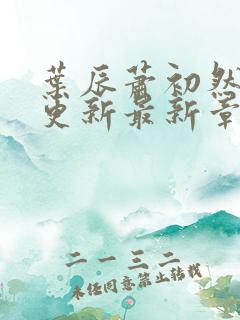 葉辰蕭初然
更新最新章
二一三二
未经同意禁止转载